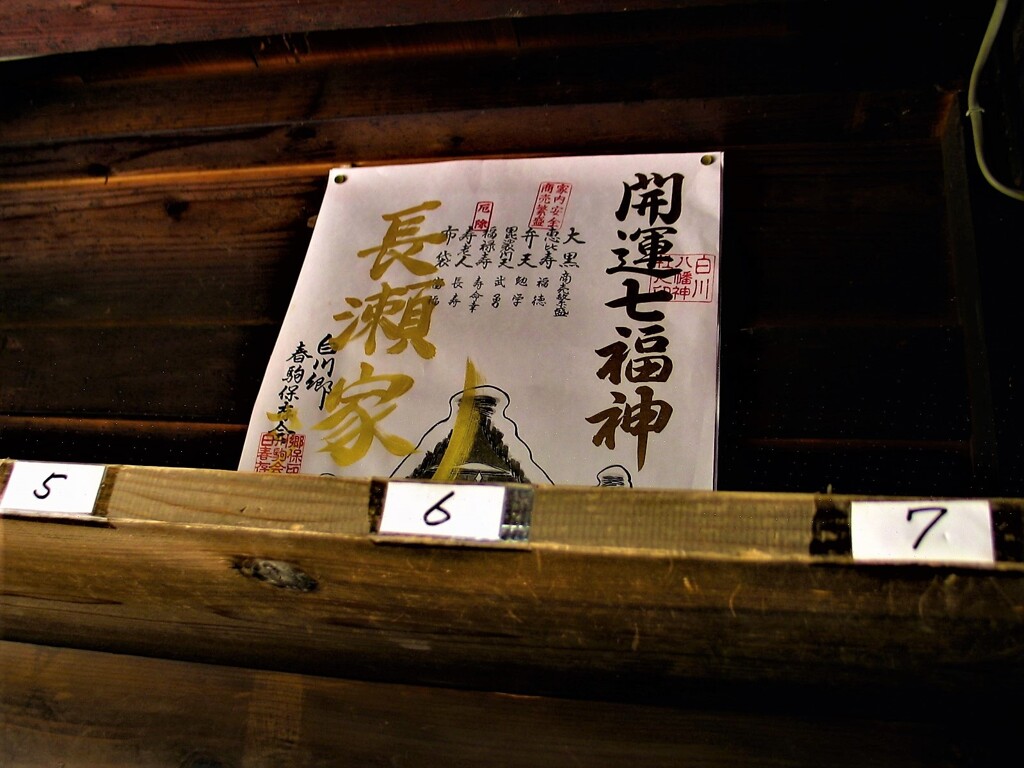 開運七福神
白川
八幡神
家内安全
商売繁盛
厄除
大黒 商売繁盛
恵比寿 福徳
弁天 勉学
毘沙門天 武勇
福禄寿 寿命
寿老人 長寿
布袋
長瀬家
白川郷
春駒保存会
5
6
7